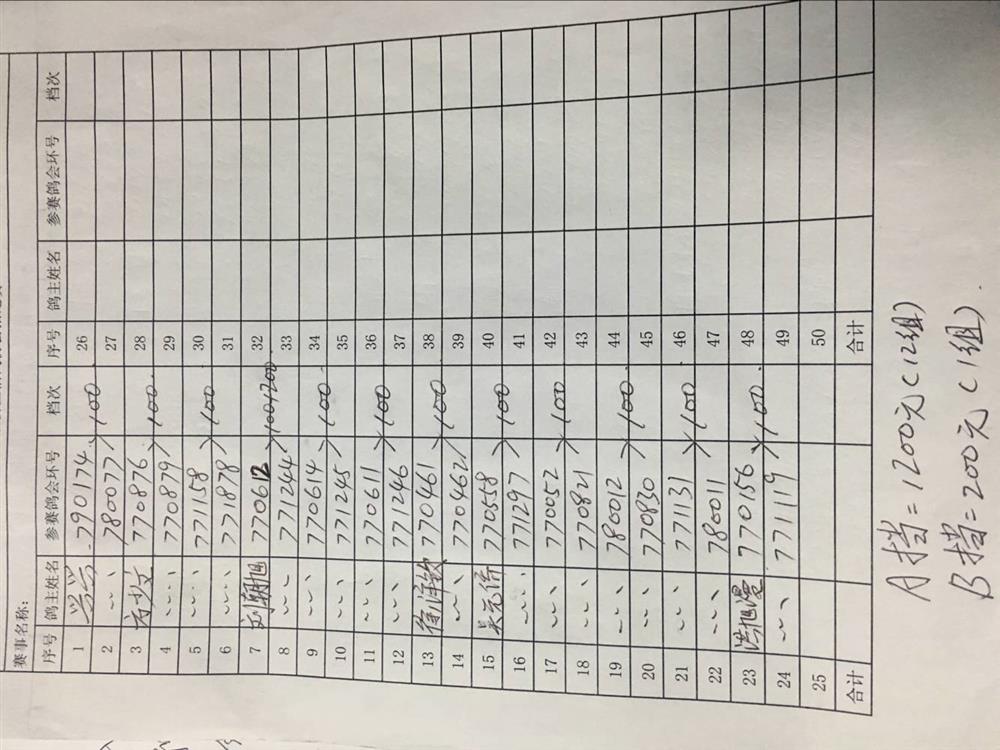 赛事名称:
序号 鸽主姓名 参赛鸽会环号 档次 序号 鸽主姓名 参赛鸽会环号 档次
1 兴兴 790174 26
2 〃 780077 100 27
3 方少文 770876 28
4 〃 770879 100 29
5 〃 771158 30
6 〃 771878 100 31
7 刘朝旭 770612 32
8 〃 771244 100+200 33
9 〃 770614 34
10 〃 771245 100 35
11 〃 770611 36
12 〃 771246 100 37
13 770461 38
14 〃 770462 100 39
15 770558 40
16 〃 771297 100 41
17 〃 770052 42
18 〃 770821 100 43
19 〃 780012 44
20 〃 770830 100 45
21 〃 771131 46
22 〃 780011 100 47
23 洪旭漫 770156 48
24 〃 771119 100 49
25 50
合计 合计
A挡=1200元(12组)
B挡=200元(1组).